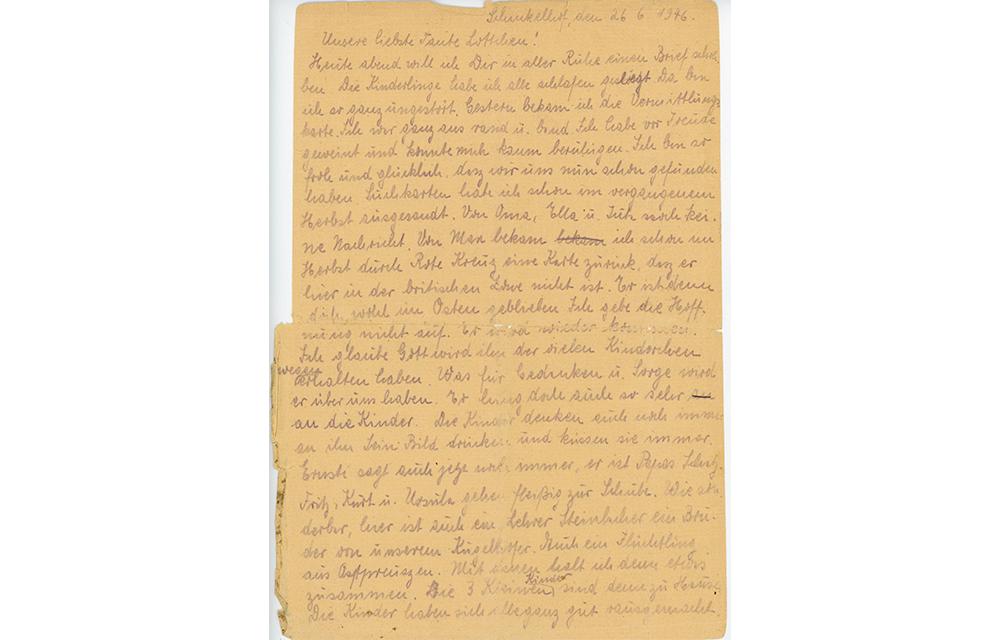 Schinkelhof, den 26 6 1946.
Unsere liebste Tante Lottchen!
Heute abend will ich Dir in aller Ruhe einen Brief schrei
ben. Die Kinderlinge habe ich alle schlafen geslegt. Da bin
ich so ganz ungestört. Gestern bekam ich die Vermittlungs
karte. Ich war ganz aus rand u. band. Ich habe vor Freude
geweint und konnte mich kaum beruhigen. Ich bin so
froh und glücklich, dasz wir uns nun schon gefunden
haben. Suchkarten hab ich schon im vergangenem
Herbst ausgesandt. Von Oma, Ella u. noch kei-
ne Nachricht. Von Max bekam bekam ich schon im
Herbst durch Rote Kreuz eine Karte zurück, dasz er
hier in der britischen Zone nicht ist. Er ist denn
doch wohl im Osten geblieben. Ich gebe die Hoff-
nung nicht auf. Er wird wieder kommen.
Ich glaube Gott wird ihn der vielen Kinderchen
wegen erhalten haben. Was für Gedanken u. Sorge wird
er über uns haben. Er hing doch auch so sehr
an die Kinder. Die Kinder denken auch noch immer
an ihn. Sein Bild drücken und küssen sie immer.
Ernste sagt auch jetz noch immer, er ist Papas
Fritz, Kurt u. Ursula gehen fleißig zur Schule. Wie
derbar, hier ist auch ein Lehrer Steinbacher ein Bru-
der von unserem Auch ein Flüchtling
aus Ostpreuszen. Mit denen halt ich denn etwas
zusammen. Die 3 Kleinen Kinder sind denn zu Hause
Die Kinder haben sich alle ganz gut rausgemacht.